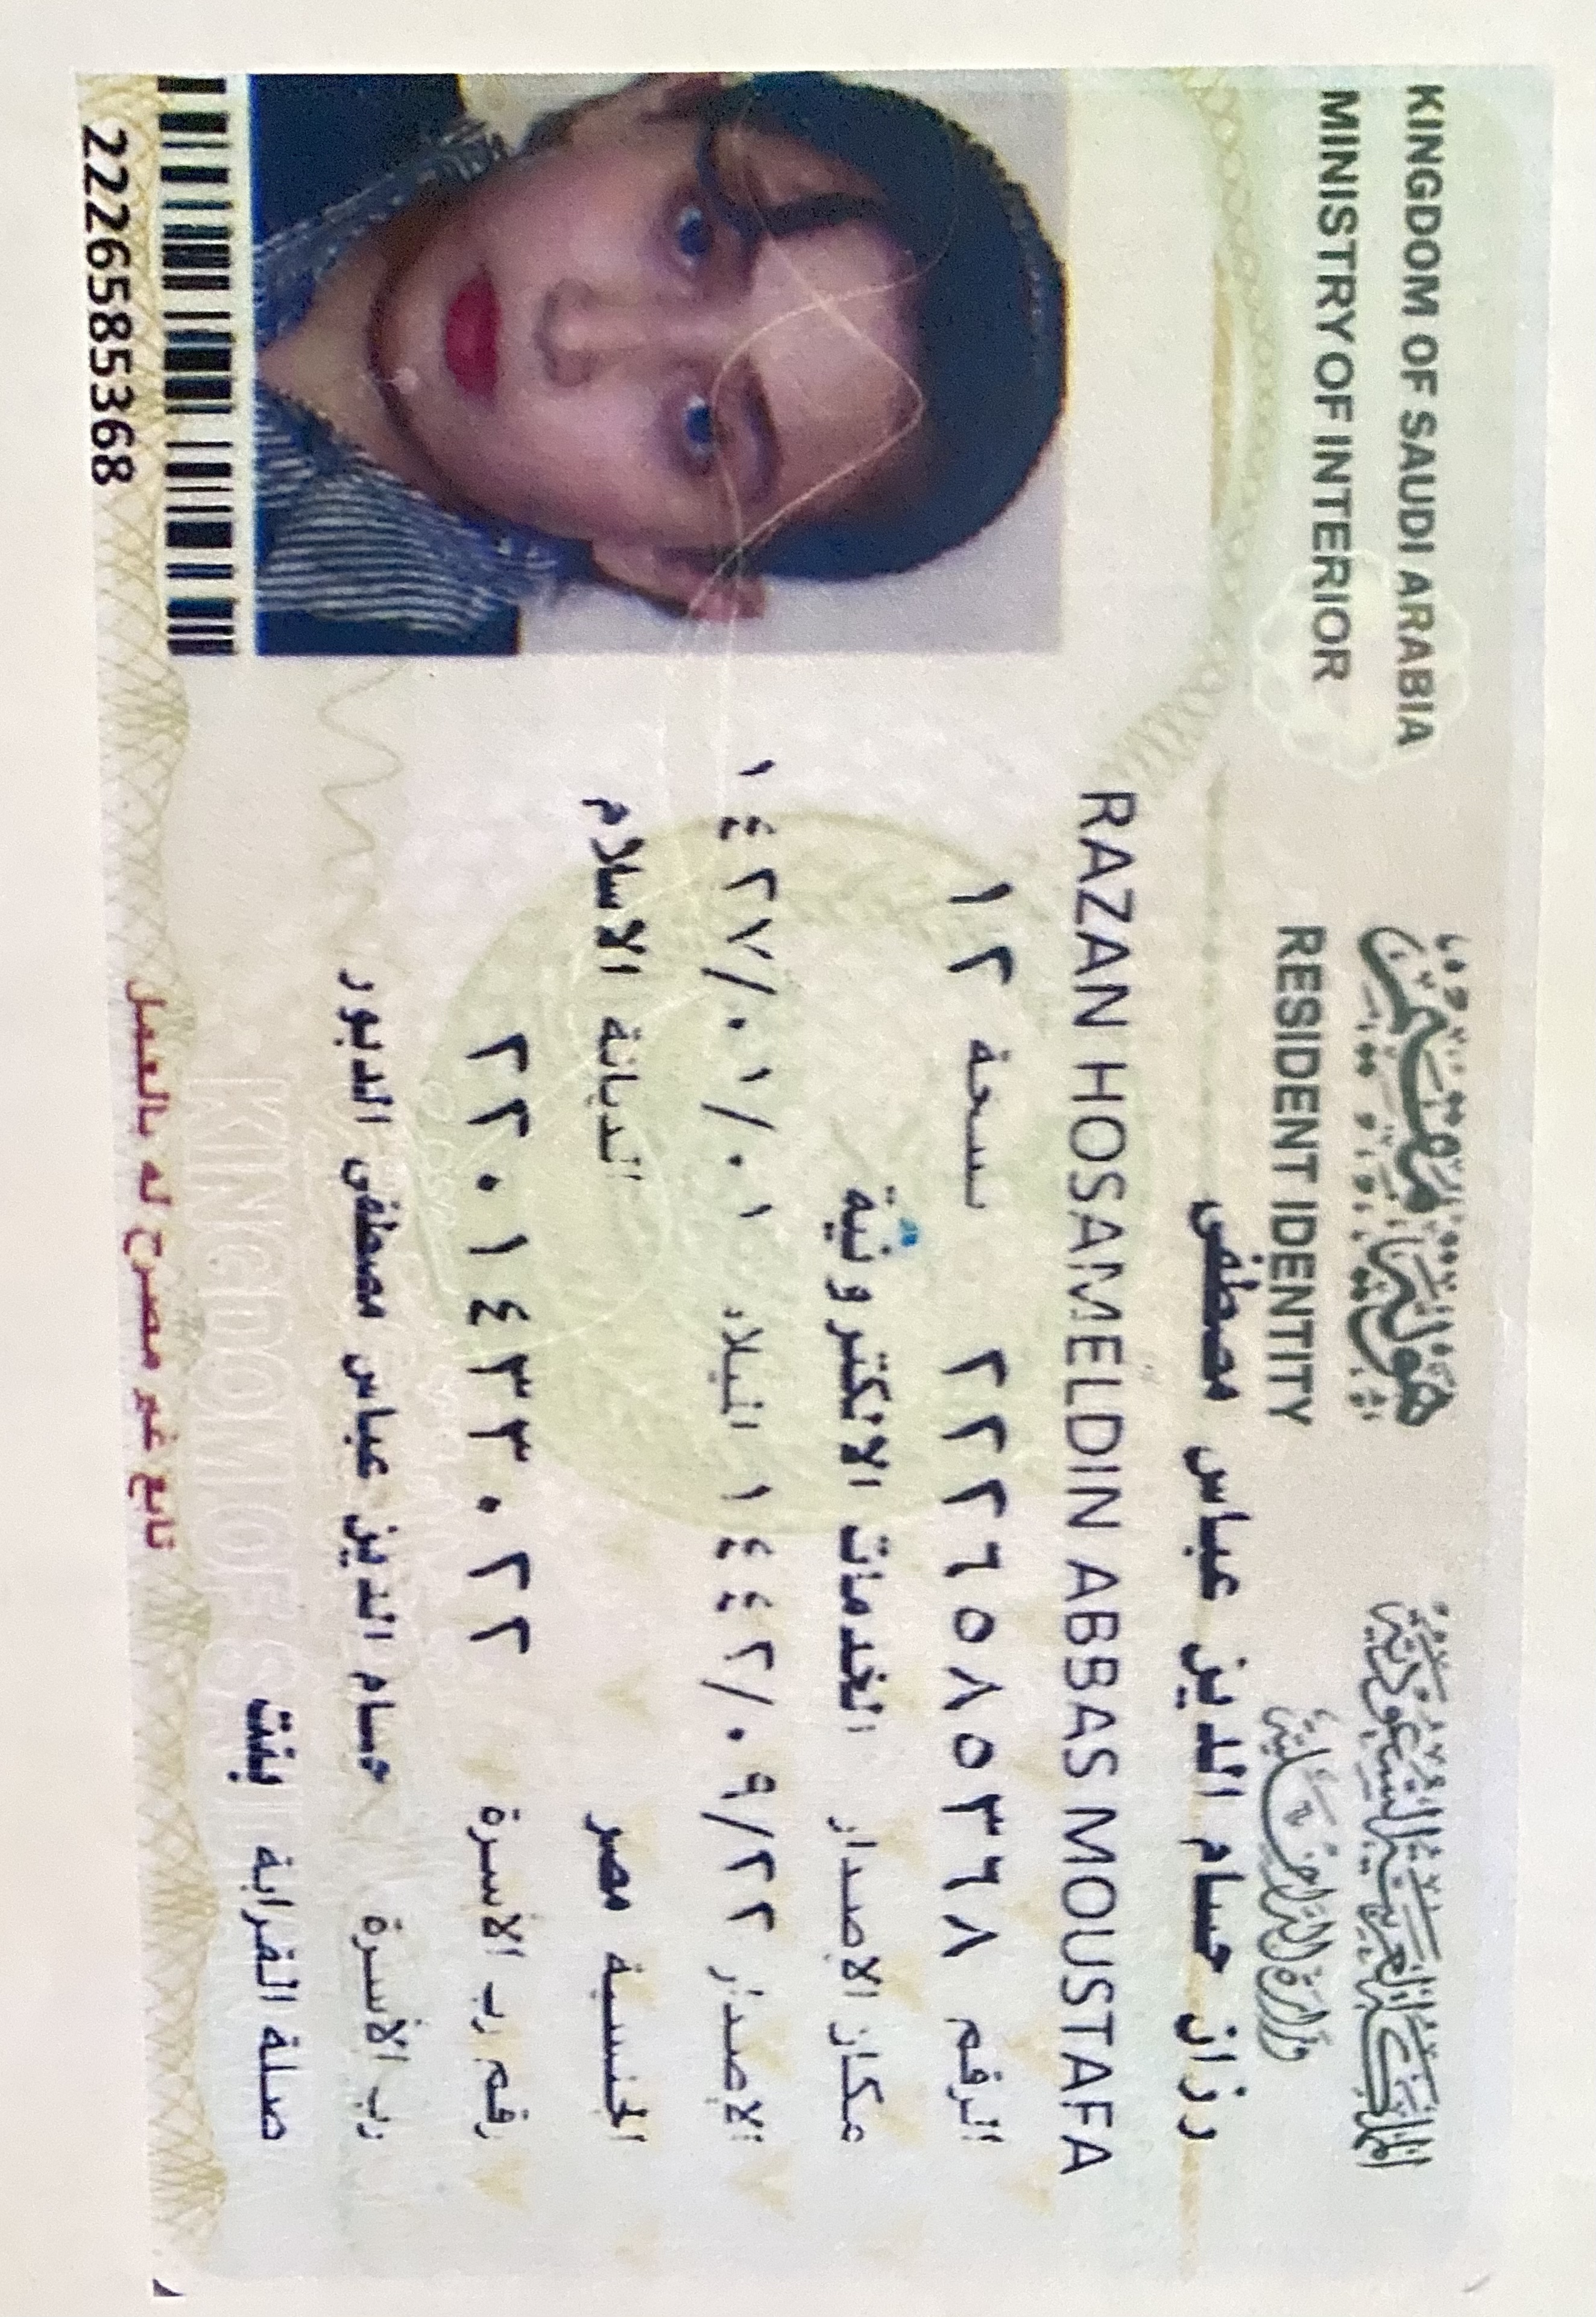 المملكة العربية السعودية
هوية مقيم
KINGDOM OF SAUDI ARABIA
وزارة الداخلية
RESIDENT IDENTITY
MINISTRY OF INTERIOR
رزان حسام الدين عباس مصطفى
RAZAN HOSAMELDIN ABBAS MOUSTAFA
الرقم ٢٢٢٦٥٨٥٣٦٨ نسخة ١٢
مكان الاصدار الخدمات الالكترونية
الاصدار ١٤٤٢/٠٩/٢٢ الميلاد ١٤٢٧/٠١/٠١
الجنسية مصر الديانة الاسلام
رقم رب الأسرة ٢٢٠١٤٣٣٠٢٢
رب الأسرة حسام الدين عباس مصطفى الدبور
صلة القرابة بنت
KINGDOM OF
تابع غير مصرح له بالعمل
2226585368